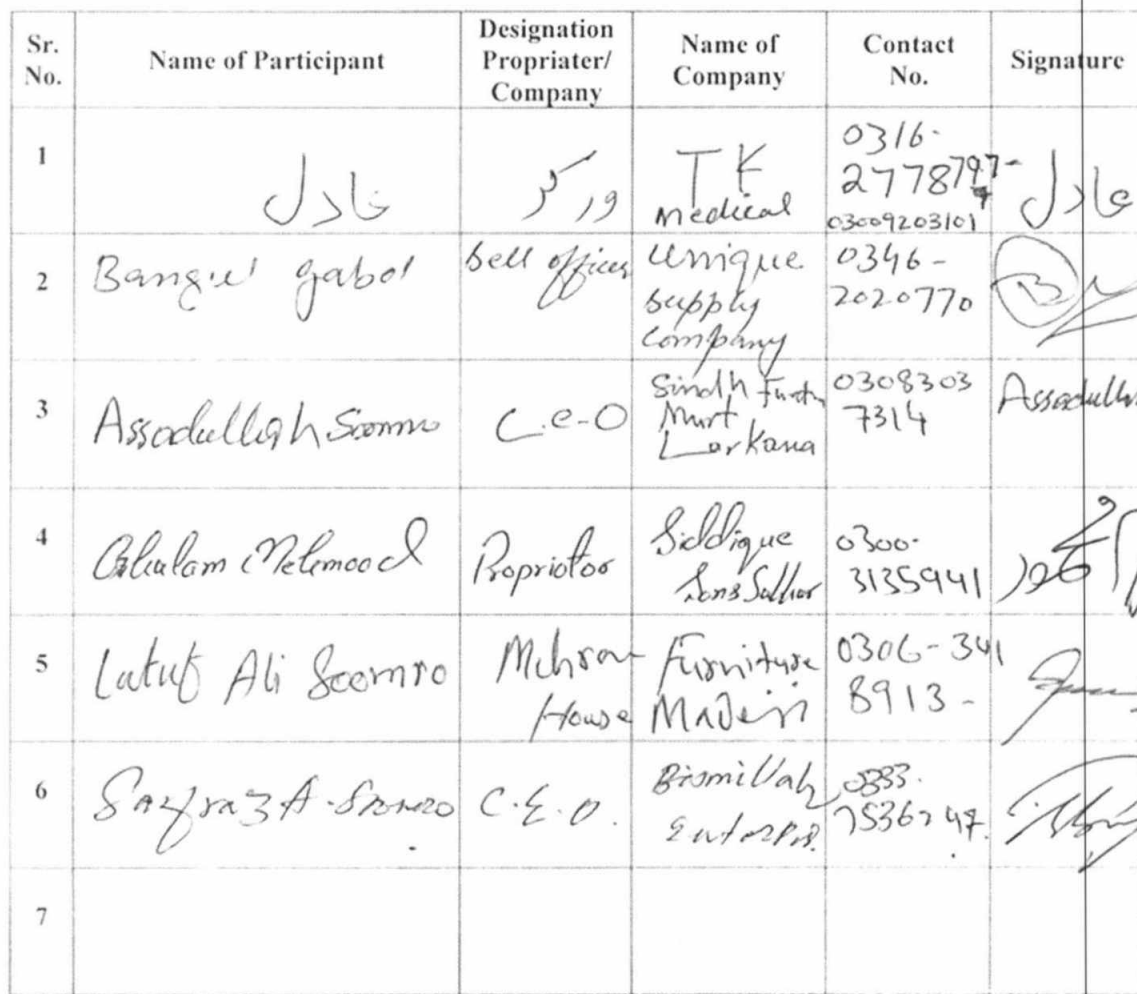 Sr. No. Name of Participant Designation Propriater/ Company Name of Company Contact No. Signature
1 عادل ورکر T K medical 0316- 2778797- 03009203101 عادل
2 Bangul gabol Sell officer Unique supply company 0346- 2020770
3 Assadullah Soomro C.e-O Sindh Mart Larkana 0308303 7314 Assadullah
4 Ghulam Mehmood Proprietor Siddique Sons 0300- 3135941
5 Ali Soomro Mehran House Furniture 0306-341 8913-
6 Sarfraz A. Soomro C.E.O. Bismillah 0333.
7